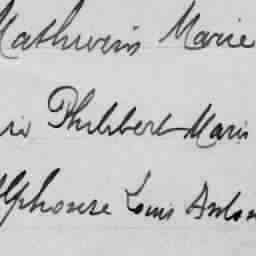 Mathurin Marie
Philibert Marie
Alphonse Louis Anton